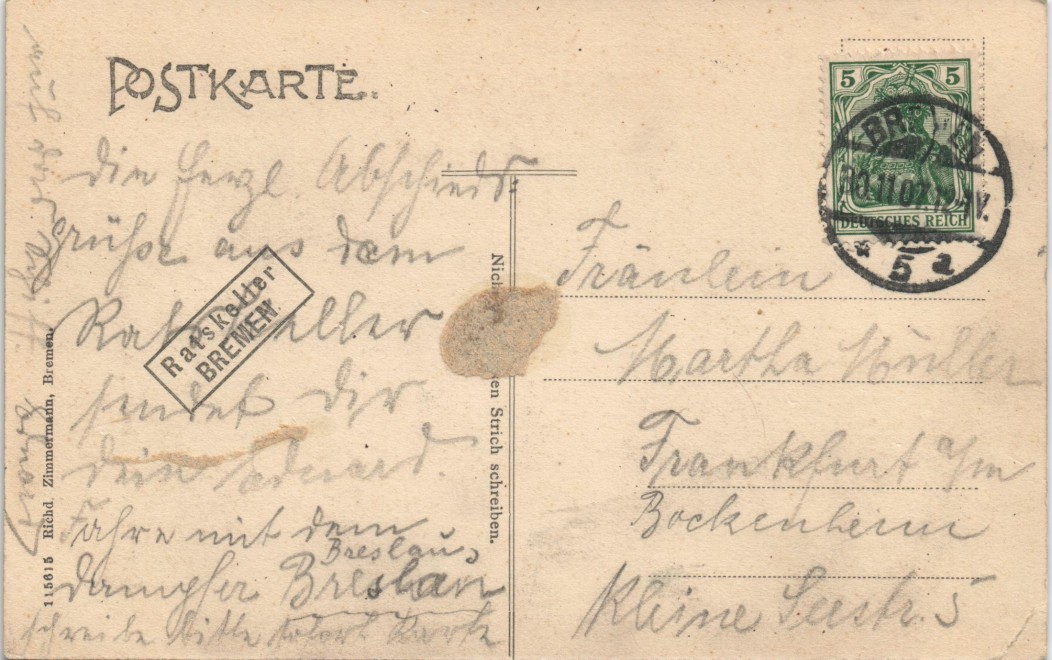 POSTKARTE.
die herzl. Abschieds-
grüße aus dem
Ratskeller
sendet dir
dein Eduard.
Fahre mit dem
Breslau,
dampfer Breslau
schreibe bitte sofort Karte
auf
Eduard
Ratskeller
BREMEN
115615 Richd Zimmermann, Bremen.
Nich en Strich schreiben.
5 5
DEUTSCHES REICH
BR
11.07.12-1V.
* 5 a
Fräulein
Martha Müller
Frankfurt a/m
Bockenheim
Kleine Seestr. 5